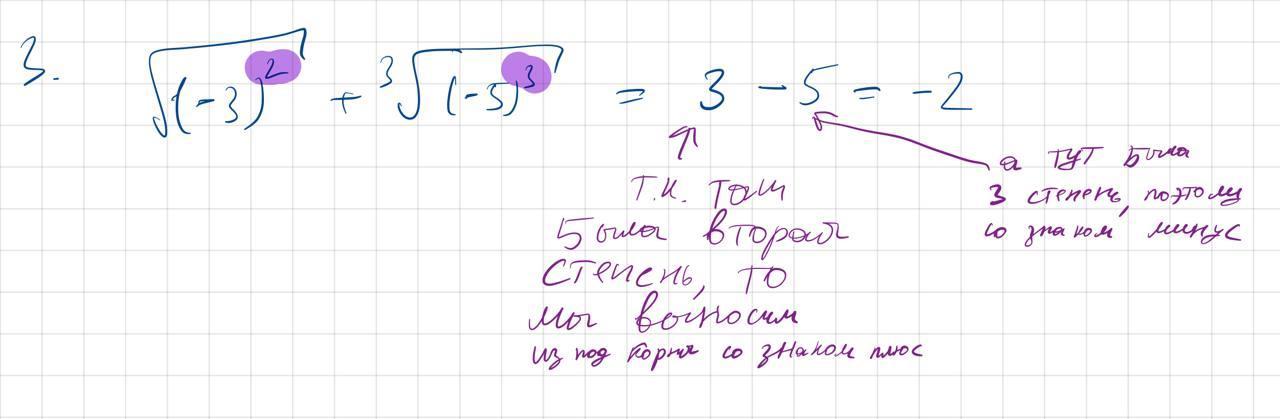 3. √(-3)² + ³√(-5)³ = 3 - 5 = -2
Т.к. там
была вторая
степень, то
мы выносим
из под корня со знаком плюс
а тут была
3 степень, поэтому
со знаком минус